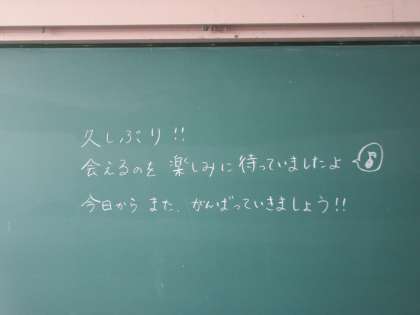 久しぶり!!
会えるのを楽しみに待っていましたよ♪
今日からまた、がんばっていきましょう!!